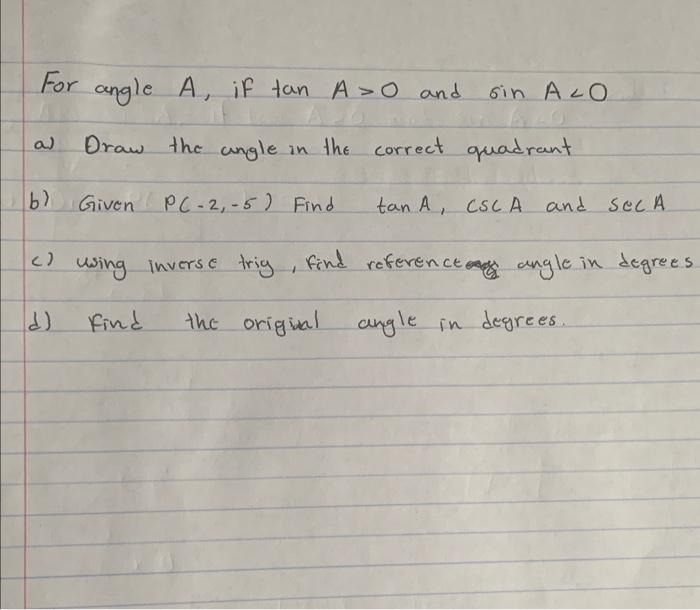 For angle A, if tan A > 0 and sin A < 0
a) Draw the angle in the correct quadrant
b) Given P(-2,-5) Find tan A, CSC A and Sec A
c) using inverse trig, find reference angle in degrees
d) Find the original angle in degrees.